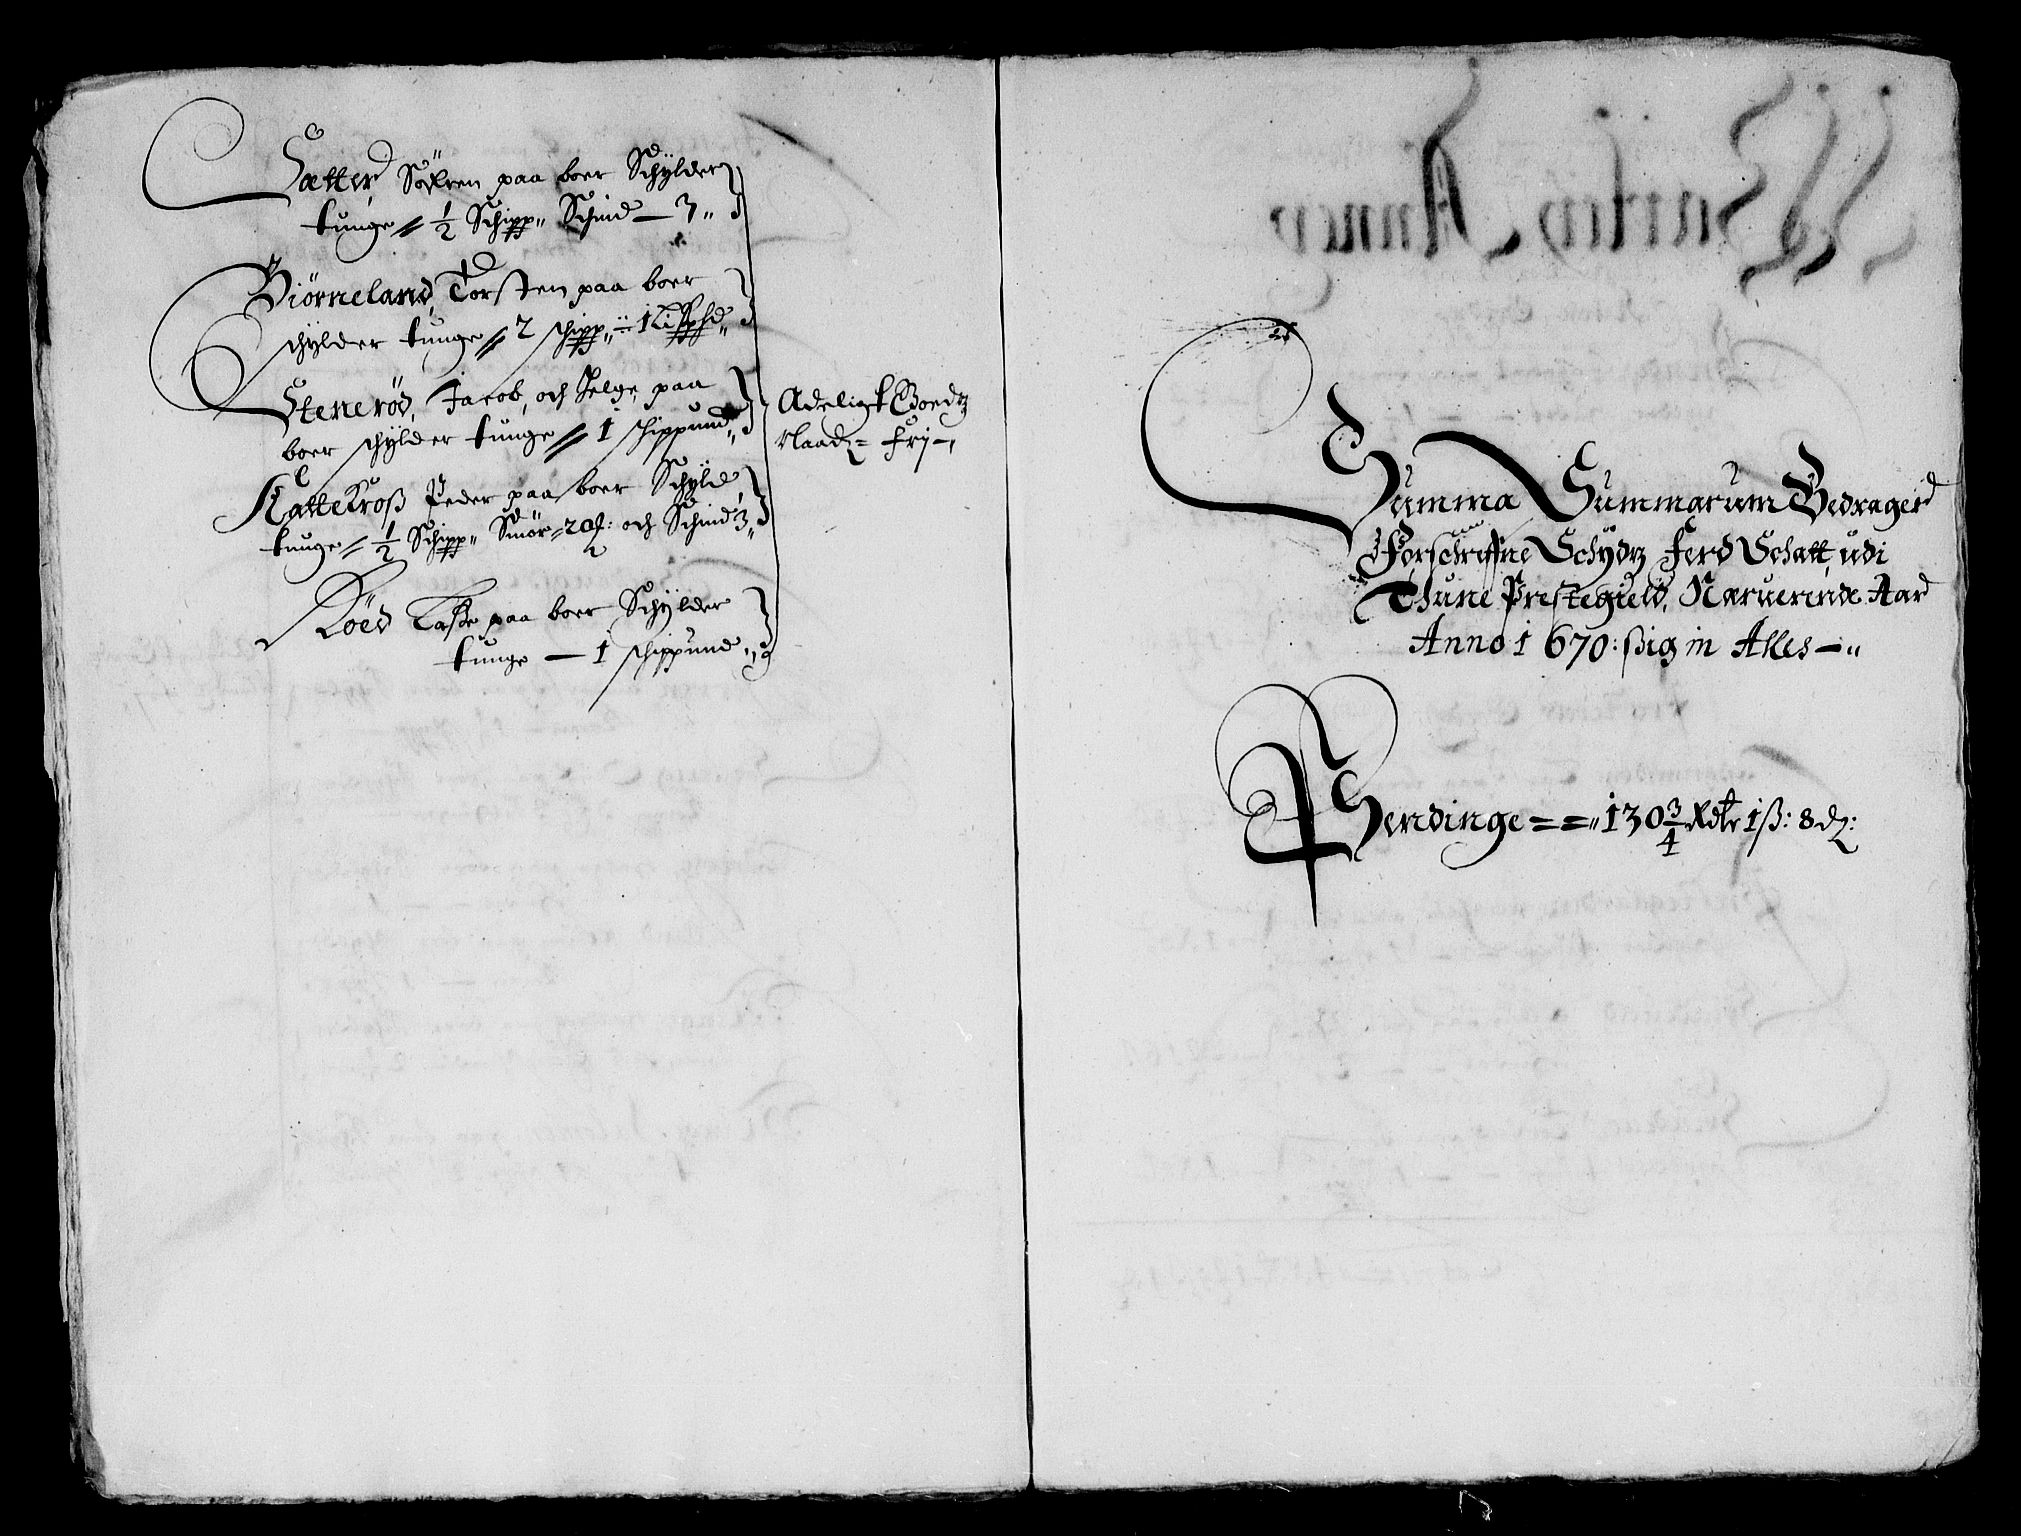 Sætter Søfren paa boer Schylder
tunge // 1/2 Schipp" Schind — 3 "
Biörneland, Torsten paa boer
schylder tunge // 2 schipp: " ÷ 1 Lispd "
Steneröd, Jacob, och Helge paa
boer schylder tunge // 1 schippund "
Kattekroß Peder paa boer Schyld
tunge // 1/2 Schipp" Smör = 2 och Schind 3 "
Röed Laße paa boer Schylder
tunge — 1 schippund "
Adeligt Goedz
Naadz = Frj — "
Summa Summarum Bedrager
Forschreffne Schydz Ferd Schatt, udi
Thune Prestegield, Nærverende Aar
Anno 1670: ßig in Alles — "
Pendinge = = " 130 3/4 Rdlr 1 ß: 8 d: